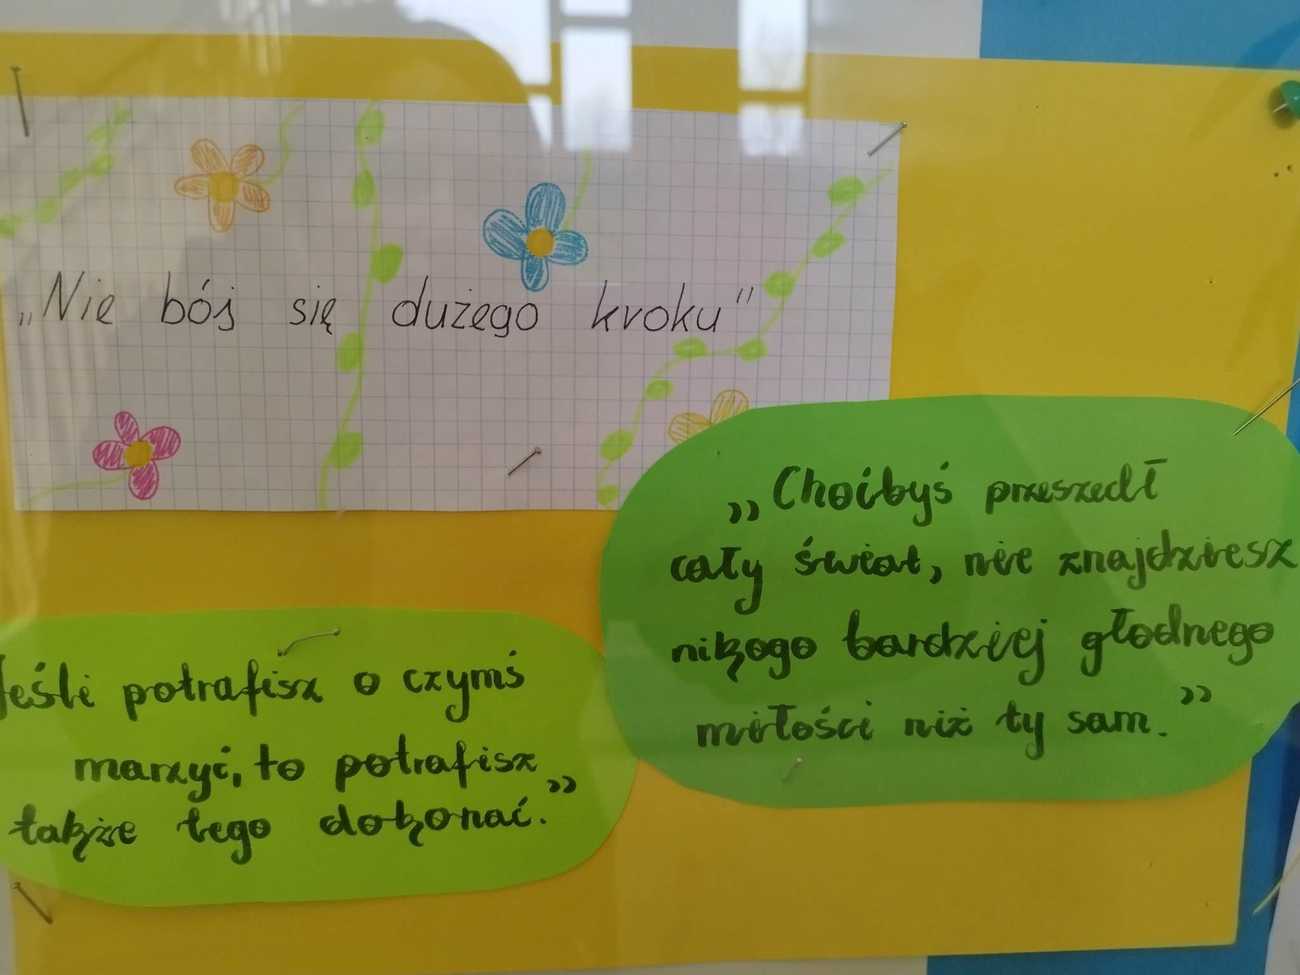 „Nie bój się dużego kroku"
„Choćbyś przeszedł
cały świat, nie znajdziesz
nikogo bardziej głodnego
miłości niż ty sam."
Jeśli potrafisz o czymś
marzyć, to potrafisz
także tego dokonać."